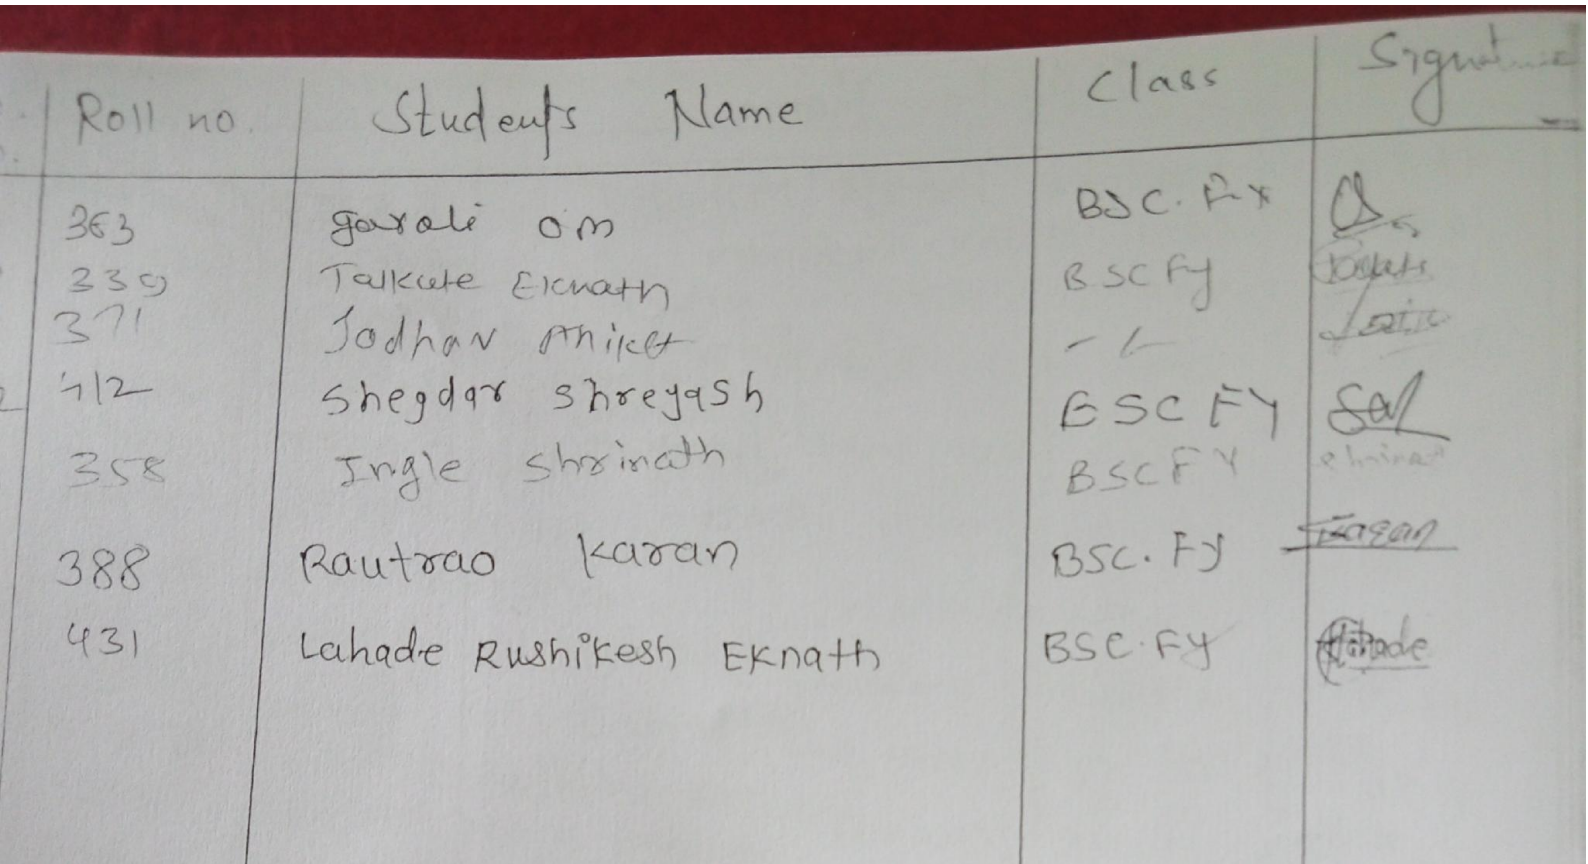 Roll no. Students Name Class
363 garole om BSC. FY
339 Talkute Eknath BSC Fy
371 Jadhav Aniket - 〃 -
412 Shegdar Shreyash BSC FY
358 Ingle Shrinath BSC FY
388 Rautrao Karan BSC. Fy Karan
431 Lahade Rushikesh Eknath BSC. FY